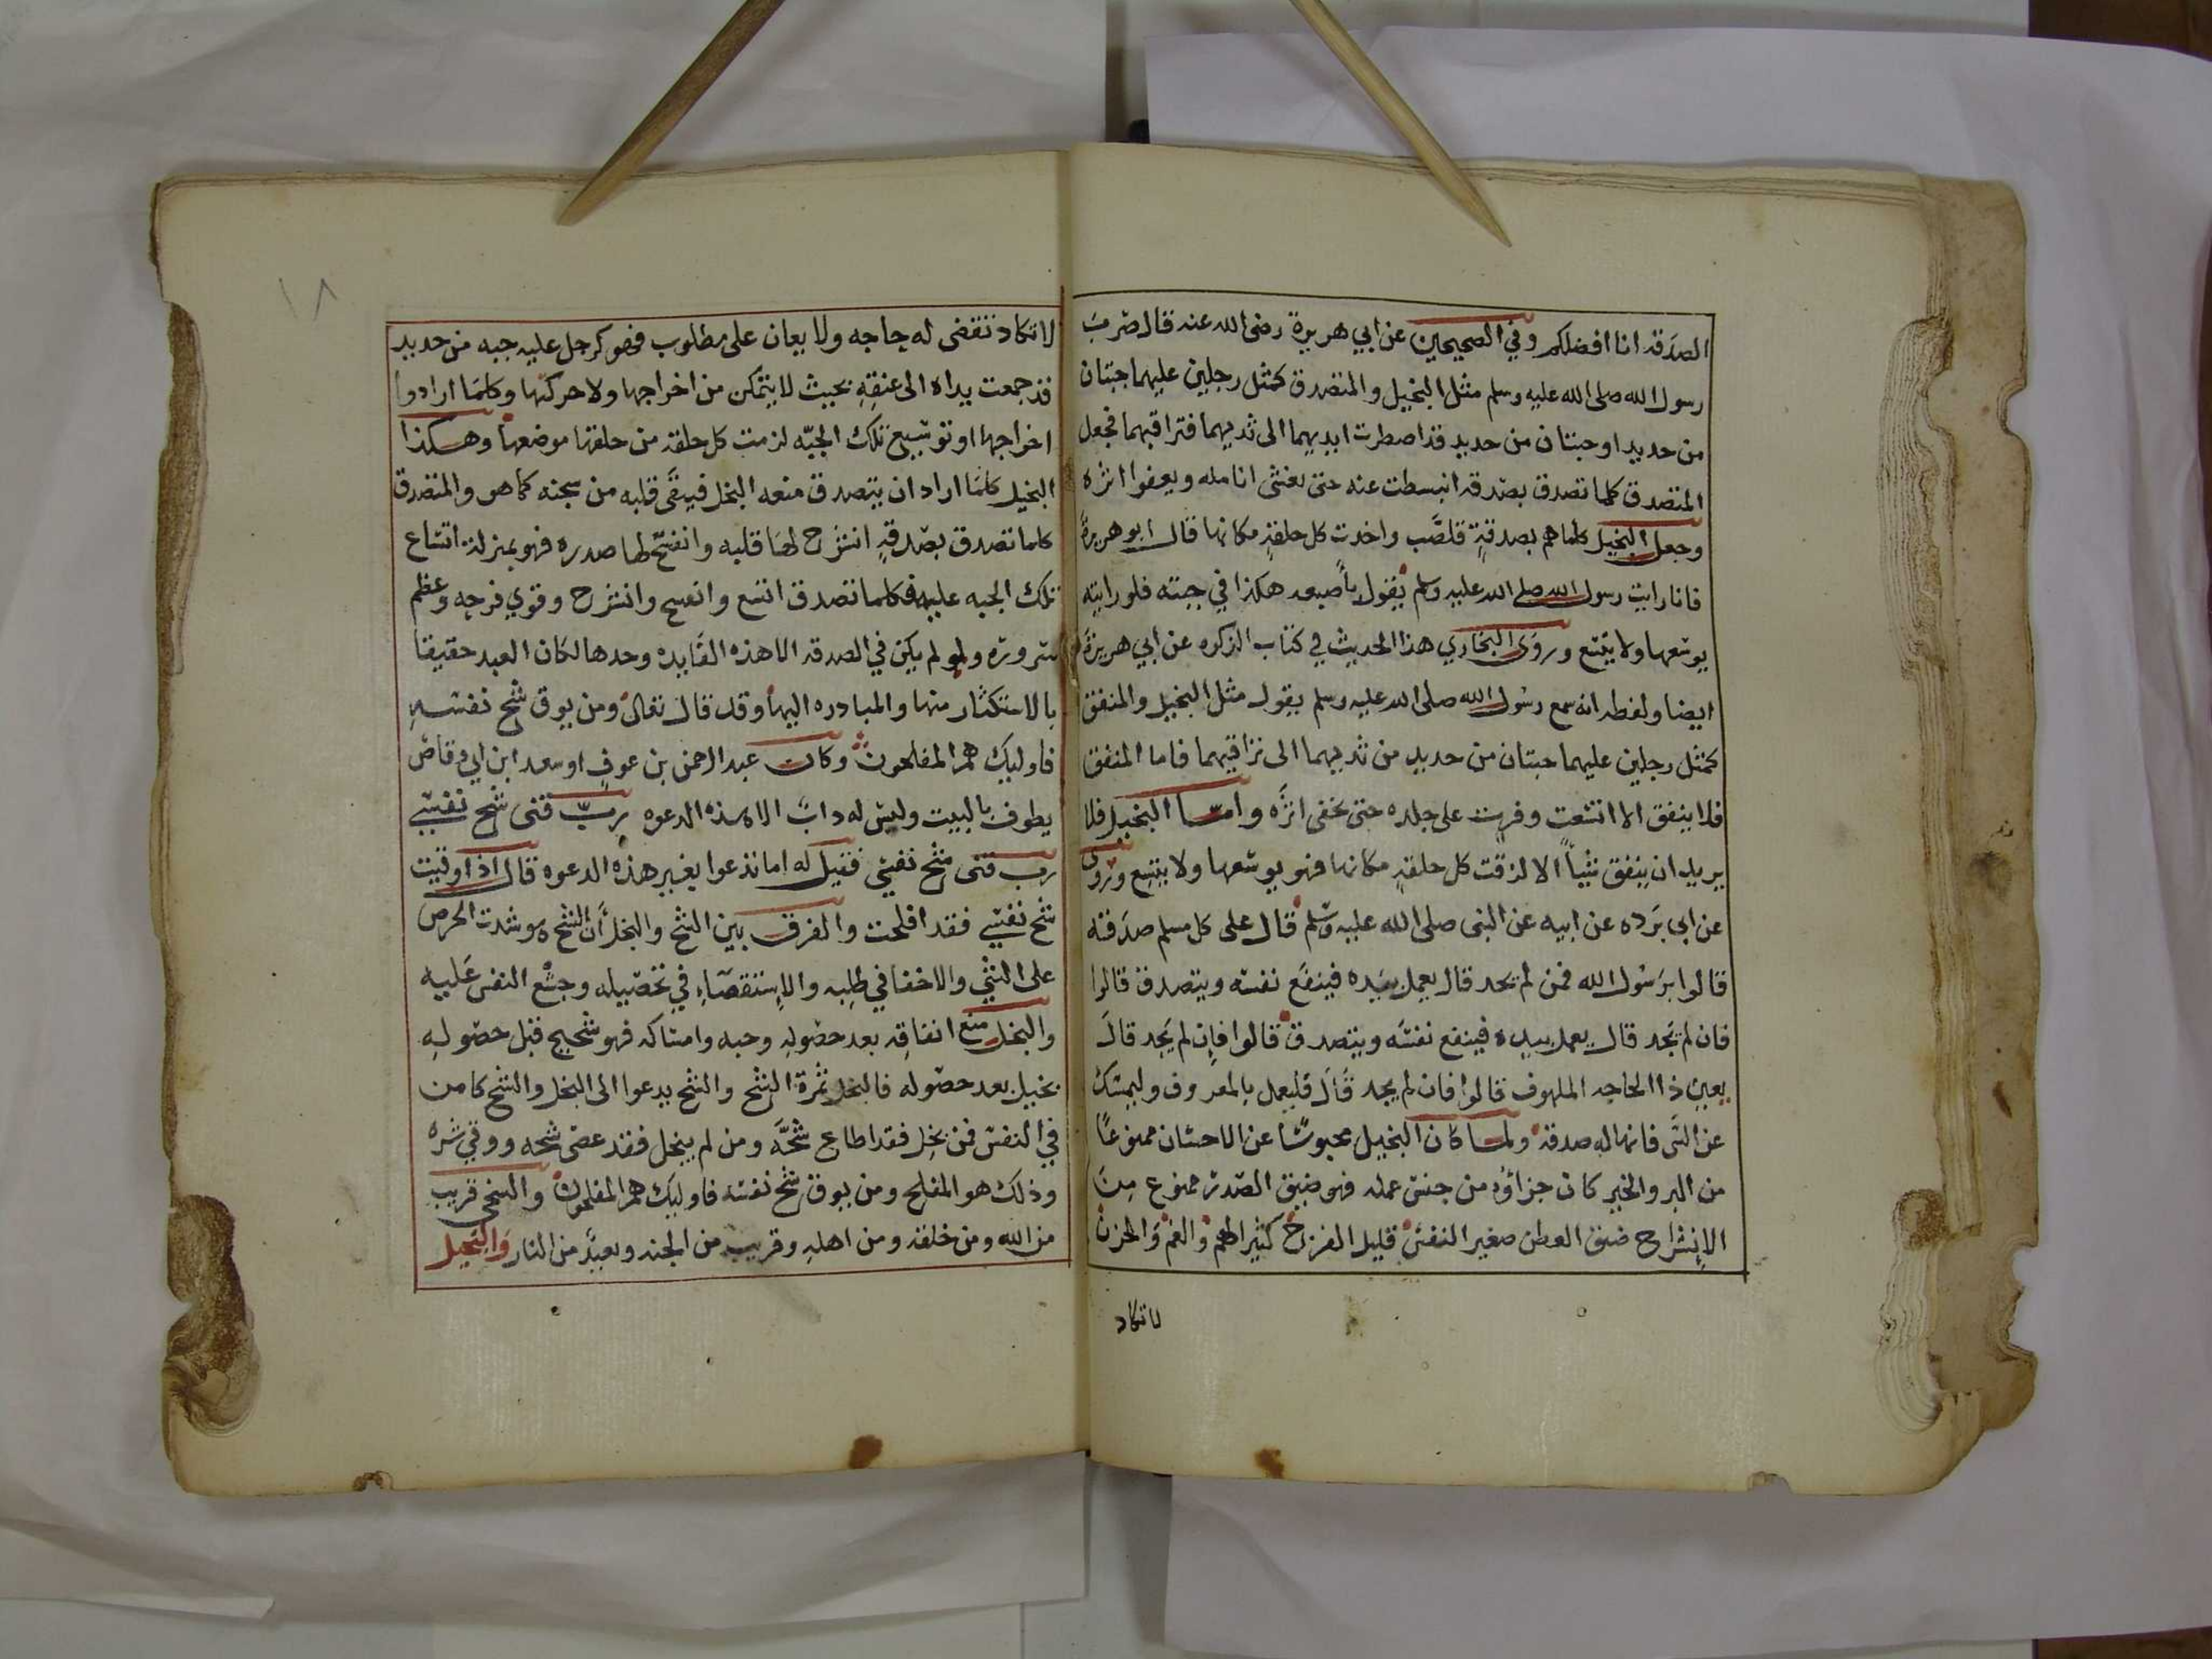 الصدقه انا افضلكم وفي الصحيحين عن ابي هريرة رضى الله عنه قال ضرب
رسول الله صلى الله عليه وسلم مثل البخيل والمتصدق كمثل رجلين عليهما جبتان
من حديد او جبتان من حديد قد اضطرت ايديهما الى ثديهما فتراقيهما فجعل
المتصدق كلما تصدق بصدقه انبسطت عنه حتى تغشى انامله ويعفوا اثره
وجعل البخيل كلما هم بصدقةٍ قلصَّب واخدت كل حلقةٍ مكانها قال ابو هريرة
فانا رايت رسول الله صلى الله عليه وسلم يقول بأصبعه هكذا في جبته فلو رايته
يوسعها ولا يتسع وروى البخاري هذا الحديث في كتاب الزكوه عن ابي هريرة
ايضا ولفظه انه سمع رسول الله صلى الله عليه وسلم يقول مثل البخيل والمنفق
كمثل رجلين عليهما جبتان من حديد من ثديهما الى تراقيهما فاما المنفق
فلا ينفق الا اتسعت وفرت على جلده حتى تخفى اثره وامــا البخيل فلا
يريد ان ينفق شيأً الا لزقت كل حلقةٍ مكانها فهو يوسعها ولا يتسع وروى
عن ابي برده عن ابيه عن النبى صلى الله عليه وسلم قال على كل مسلم صدقه
قالوا يرسول الله فمن لم يجد قال يعمل بيده فينفع نفسه ويتصدق قالوا
فان لم يجد قال يعمل بيده فينفع نفسه ويتصدق قالوا فإن لم يجد قال
يعين ذا الحاجه الملهوف قالوا فان لم يجد قال فليعمل بالمعروف وليمسك
عن الشر فانها له صدقه ولمــا كان البخيل محبوسًا عن الاحسان ممنوعًا
من البر والخير كان جزاؤه من جنس عمله فهو ضيق الصدر ممنوع من
الإنشراح ضيق العطن صغير النفس قليل الفرح كثير الهم والغم والحزن
لا تكاد
١٨
لا تكاد تقضى له حاجه ولا يعان على مطلوب فهو كرجل عليه جبه من حديد
قد جمعت يداه الى عنقهِ بحيث لا يتمكن من اخراجها ولا حركتها وكلما ارادوا
اخراجها او توسيع تلك الجبّه لزمت كل حلقه من حلقها موضعها وهــكذا
البخيل كلما اراد ان يتصدق منعه البخل فيبقى قلبه من سجنه كما هو والمتصدق
كلما تصدق بصدقةٍ انشرح لها قلبه وانفتح لها صدره فهو بمنزلة اتساع
تلك الجبه عليه فكلما تصدق اتسع وانفسح وانشرح وقوي فرحه وعظم
سروره ولو لم يكن في الصدقه الا هذه الفايده وحدها لكان العبد حقيقا
بالاستكثار منها والمبادره اليها وقد قال تعالى ومن يوق شح نفسهِ
فاوليك هم المفلحون وكان عبد الرحمن بن عوفٍ او سعد ابن ابي وقاص
يطوف بالبيت وليس له دابٌ الا هذه الدعوه ربّ قنى شح نفسي
رب قنى شح نفسي فقيل له اما تدعوا بغير هذه الدعوه قال اذا وقيت
شح نفسي فقد افلحت والفرق بين الشح والبخل أن الشح هو شدت الحرص
على الشي والاحفا في طلبه والإستقصاء في تحصيله وجشع النفس عليه
والبخل منع انفاقه بعد حصولهِ وحبه وامساكه فهو شحيح قبل حصولهِ
بخيل بعد حصوله فالبخل ثمرة الشح والشح يدعوا الى البخل والشح كامن
في النفس فمن بخل فقد اطاع شحَّه ومن لم يبخل فقد عصى شحه ووقي شره
وذلك هو المفلح ومن يوق شح نفسه فاوليك هم المفلحون والسخى قريب
من الله ومن خلقه ومن اهلهِ وقريب من الجنه وبعيدٌ من النار والبخيل